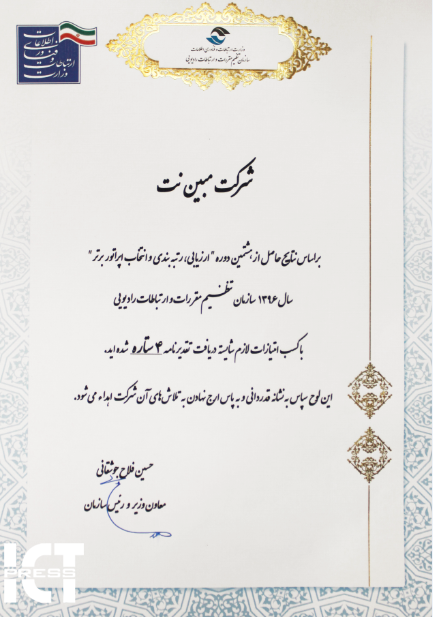 وزارت ارتباطات و فناوری اطلاعات
وزارت ارتباطات و فناوری اطلاعات
سازمان تنظیم مقررات و ارتباطات رادیویی
شرکت مبین نت
براساس نتایج حاصل از هشتمین دوره "ارزیابی، رتبه بندی و انتخاب اپراتور برتر"
سال ۱۳۹۶ سازمان تنظیم مقررات و ارتباطات رادیویی
با کسب امتیازات لازم شایسته دریافت تقدیرنامه ۴ ستاره شده اید.
این لوح سپاس به نشانه قدردانی و به پاس ارج نهادن به تلاش های آن شرکت اهداء می شود.
حسین فلاح جوشقانی
معاون وزیر و رئیس سازمان
ICT
PRESS